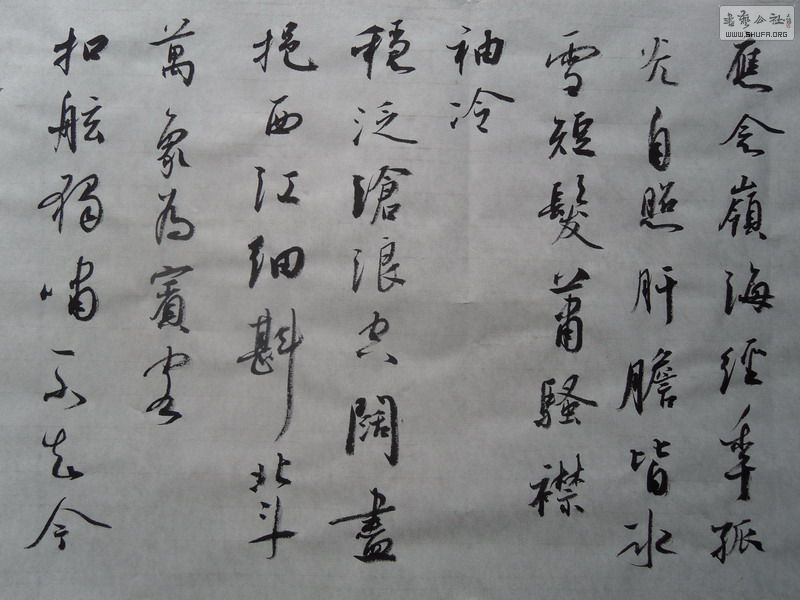 應念嶺海經年孤
光自照肝膽皆冰
雪短髮蕭騷襟
袖冷
穩泛滄浪空闊盡
挹西江細斟北斗
萬象為賓客
扣舷獨嘯不知今
書藝公社
WWW.SHUFA.ORG